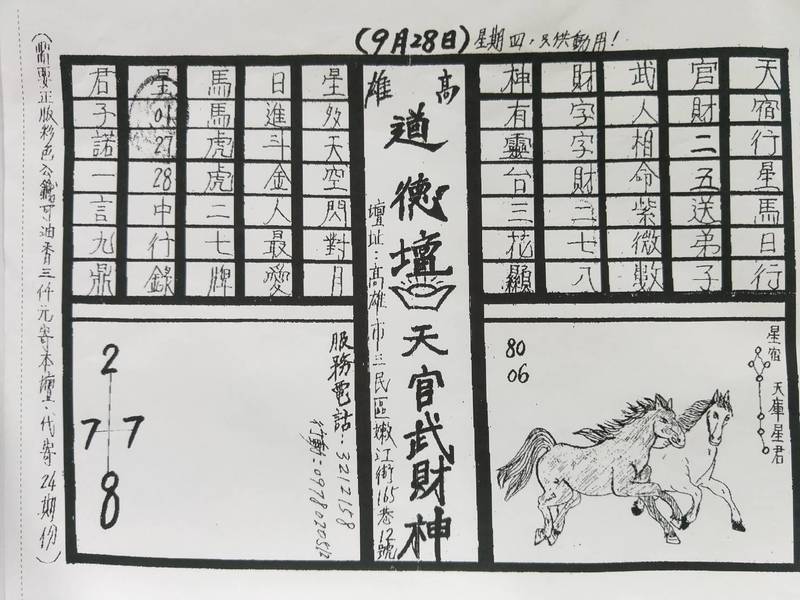 (9月28日)星期四，只供動用！
天宿行星馬日行
官財二五送弟子
武人相命紫微數
財字字財二七八
神有靈台三花顯
高雄
道德壇
天官武財神
壇址：高雄市三民區嫩江街165巷12號
星殳天空閃對月
日進斗金人最愛
馬馬虎虎二七牌
星01 27 28中行錄
君子諾一言九鼎
80
06
星宿
天庫星君
2
7 7
8
服務電話：3212158
行動：0978020812
(需要正版彩色公籤可油香三仟元寄本壇．代寄24期份)